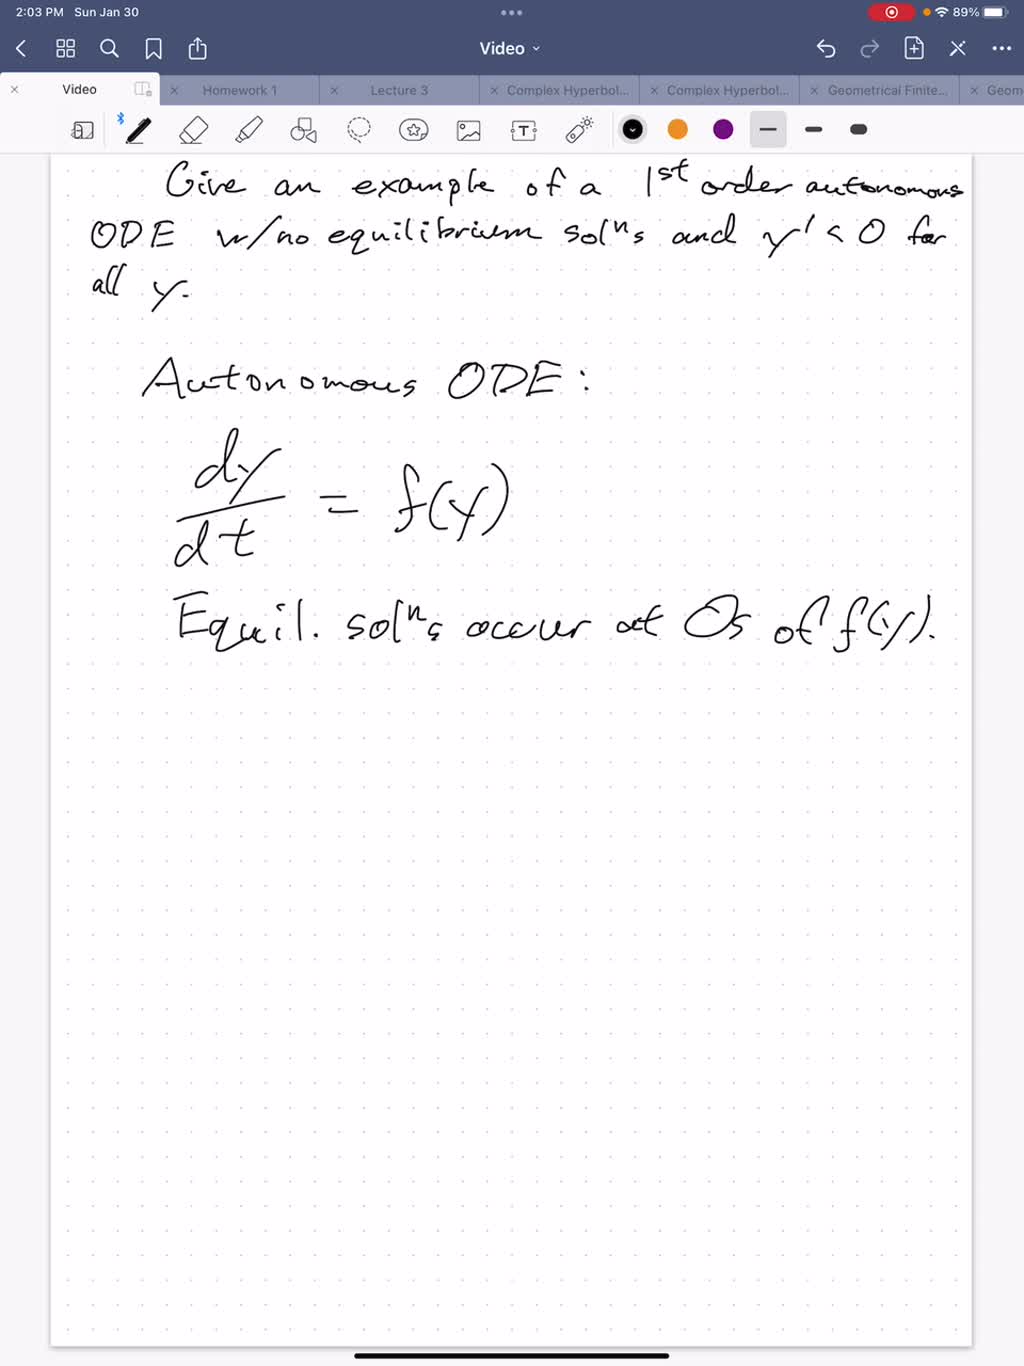 2:03 PM Sun Jan 30
89%
Video
Video
Homework 1
Lecture 3
Complex Hyperbol...
Complex Hyperbol...
Geometrical Finite...
Geom
T
Give an example of a 1st order autonomous
ODE w/no equilibrium solⁿs and y' < 0 for
all y.
Autonomous ODE:
dy
dt
= f(y)
Equil. solⁿs occur at 0s of f(y).